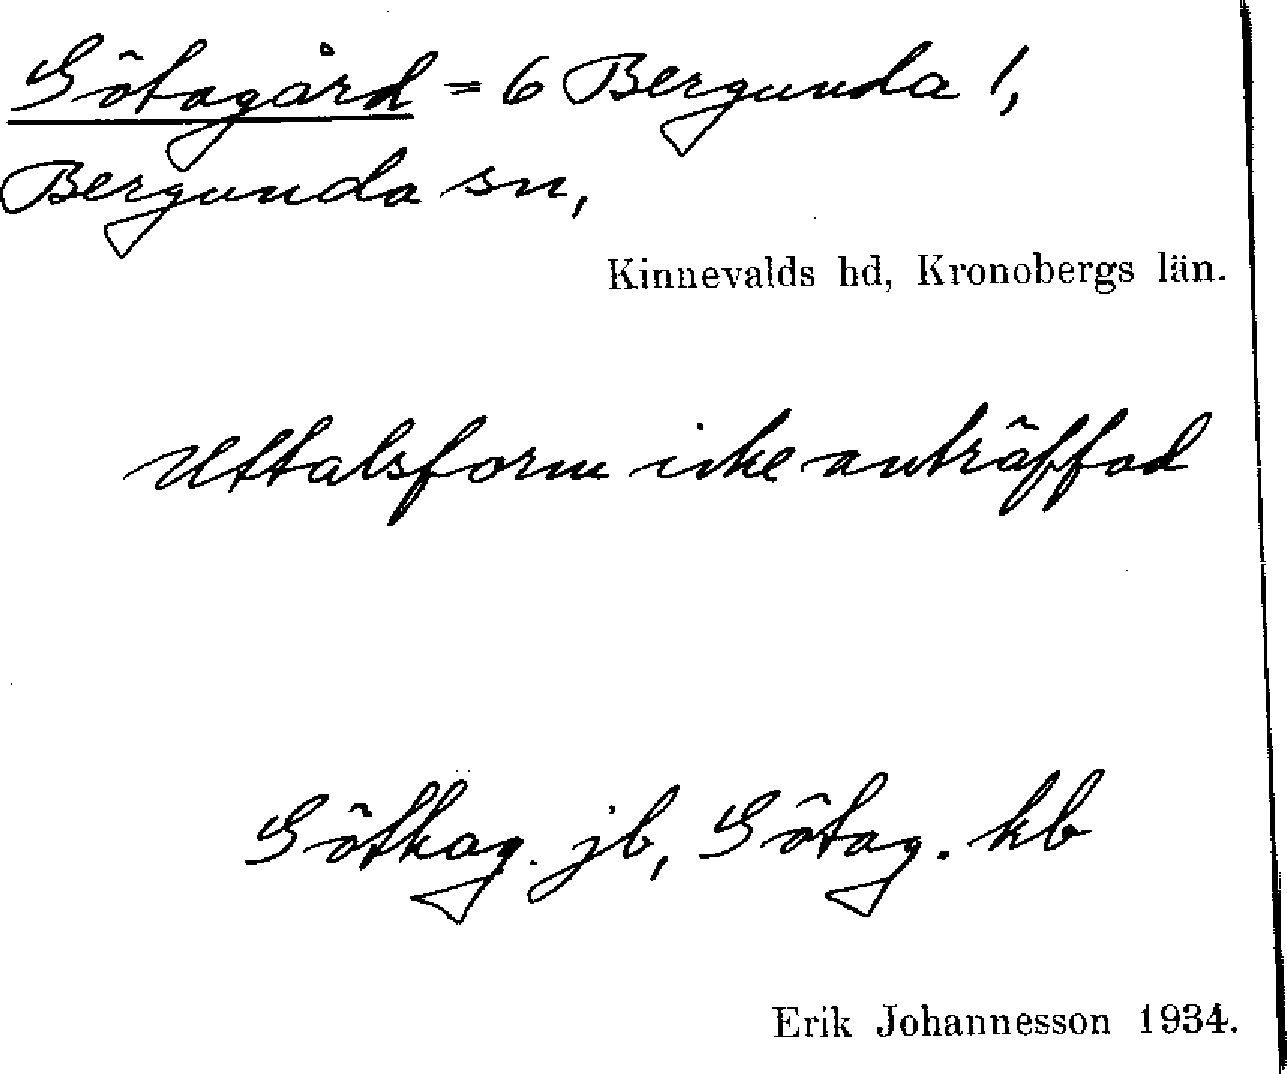 Götagård = 6 Bergunda 1,
Bergunda sn,
Kinnevalds hd, Kronobergs län.
Uttalsform icke anträffad
Göthag. jb, Götag. kb
Erik Johannesson 1934.